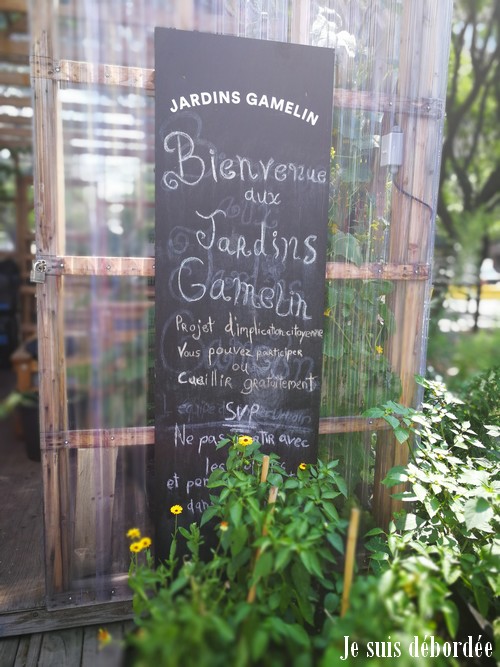 JARDINS GAMELIN
Bienvenue
aux
Jardins
Gamelin
Projet d'implication citoyenne
Vous pouvez participer
ou
Cueillir gratuitement
SVP
Ne pas avec
les
et
Je suis débordée